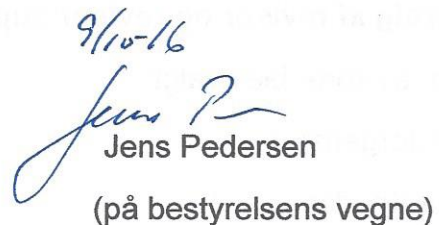 9/10-16
Jens P
Jens Pedersen
(på bestyrelsens vegne)